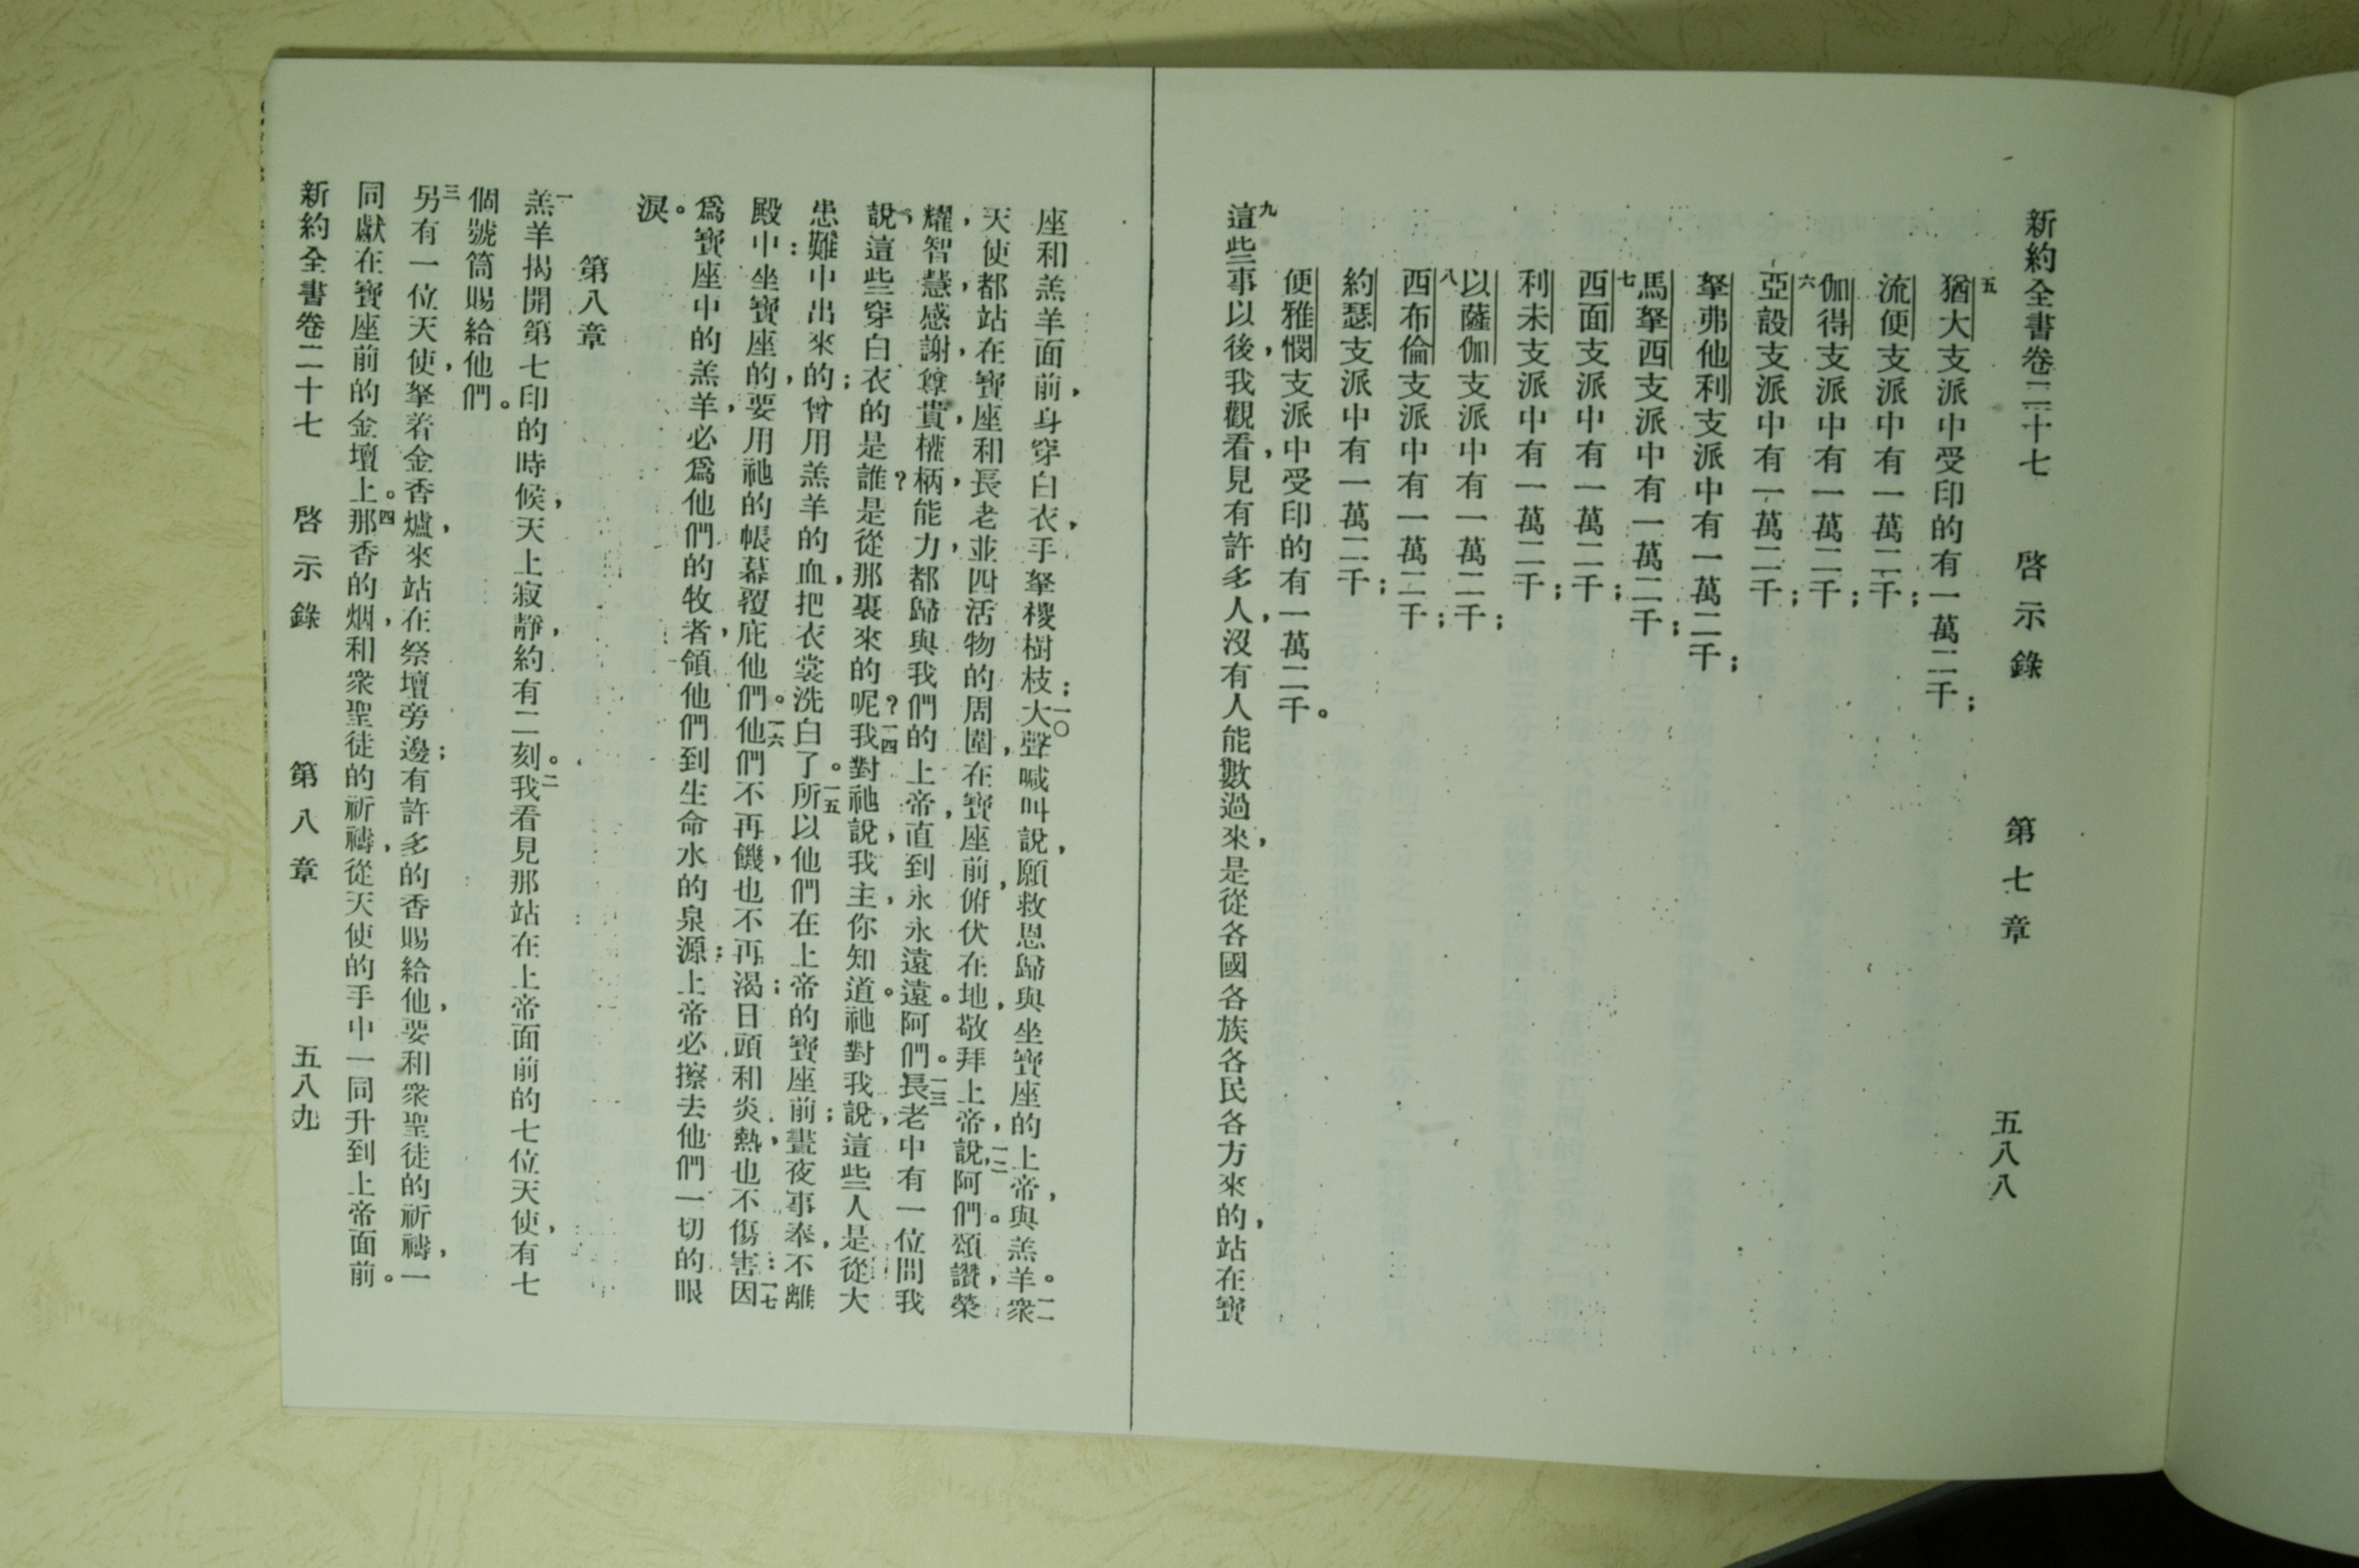 新約全書卷二十七 啓示錄 第七章 五八八
五猶大支派中受印的有一萬二千；
流便支派中有一萬二千；
伽得支派中有一萬二千；
六亞設支派中有一萬二千；
拏弗他利支派中有一萬二千；
馬拏西支派中有一萬二千；
七西面支派中有一萬二千；
利未支派中有一萬二千；
以薩伽支派中有一萬二千；
八西布倫支派中有一萬二千；
約瑟支派中有一萬二千；
便雅憫支派中受印的有一萬二千。
九這些事以後，我觀看，見有許多人，沒有人能數過來，是從各國各族各民各方來的，站在寶
座和羔羊面前，身穿白衣，手拏椶樹枝；一〇大聲喊叫說，願救恩歸與坐寶座的上帝，與羔羊。一一衆
天使都站在寶座和長老並四活物的周圍，在寶座前，俯伏在地，敬拜上帝，一二說，阿們。頌讚，榮
耀，智慧，感謝，尊貴，權柄，能力，都歸與我們的上帝，直到永永遠遠。阿們。一三長老中有一位問我
說，這些穿白衣的是誰？是從那裏來的呢？一四我對祂說，我主，你知道。祂對我說，這些人是從大
患難中出來的；曾用羔羊的血，把衣裳洗白了。一五所以他們在上帝的寶座前；晝夜事奉，不離
殿中：坐寶座的，要用祂的帳幕覆庇他們。一六他們不再饑，也不再渴；日頭和炎熱，也不傷害：一七因
爲寶座中的羔羊，必爲他們的牧者，領他們到生命水的泉源：上帝必擦去他們一切的眼
淚。
第八章
一羔羊揭開第七印的時候，天上寂靜，約有二刻。二我看見那站在上帝面前的七位天使，有七
個號筒賜給他們。
三另有一位天使，拏着金香爐，來站在祭壇旁邊；有許多的香賜給他，要和衆聖徒的祈禱，一
同獻在寶座前的金壇上。四那香的烟，和衆聖徒的祈禱，從天使的手中一同升到上帝面前。
新約全書卷二十七 啓示錄 第八章 五八九